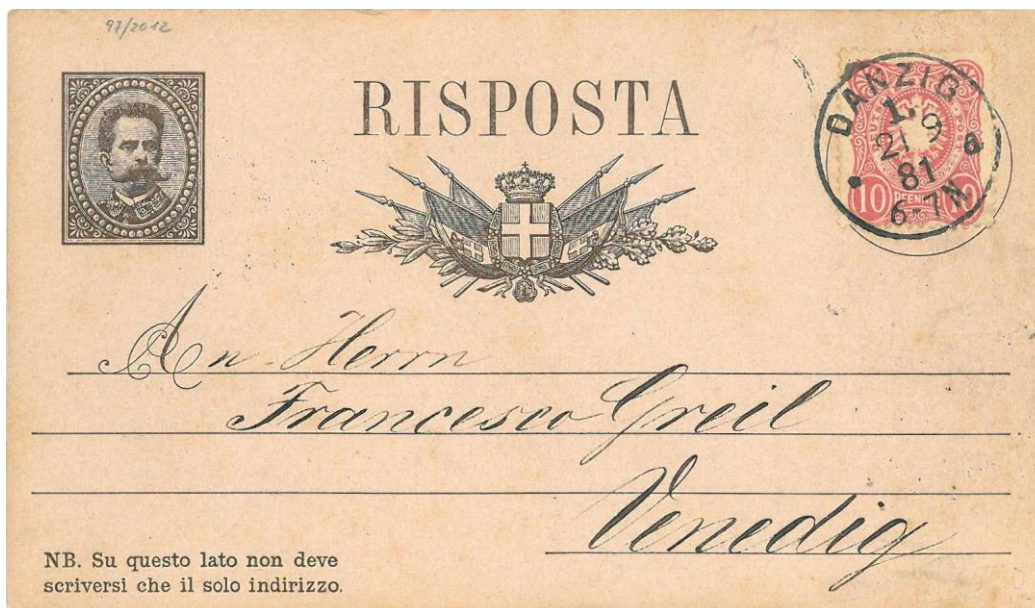 97/2012
RISPOSTA
DANZIG
1.
21 9
81
6-7 N
a
10 PFENNIG 10
An Herrn
Francesco Greil
Venedig
NB. Su questo lato non deve
scriversi che il solo indirizzo.